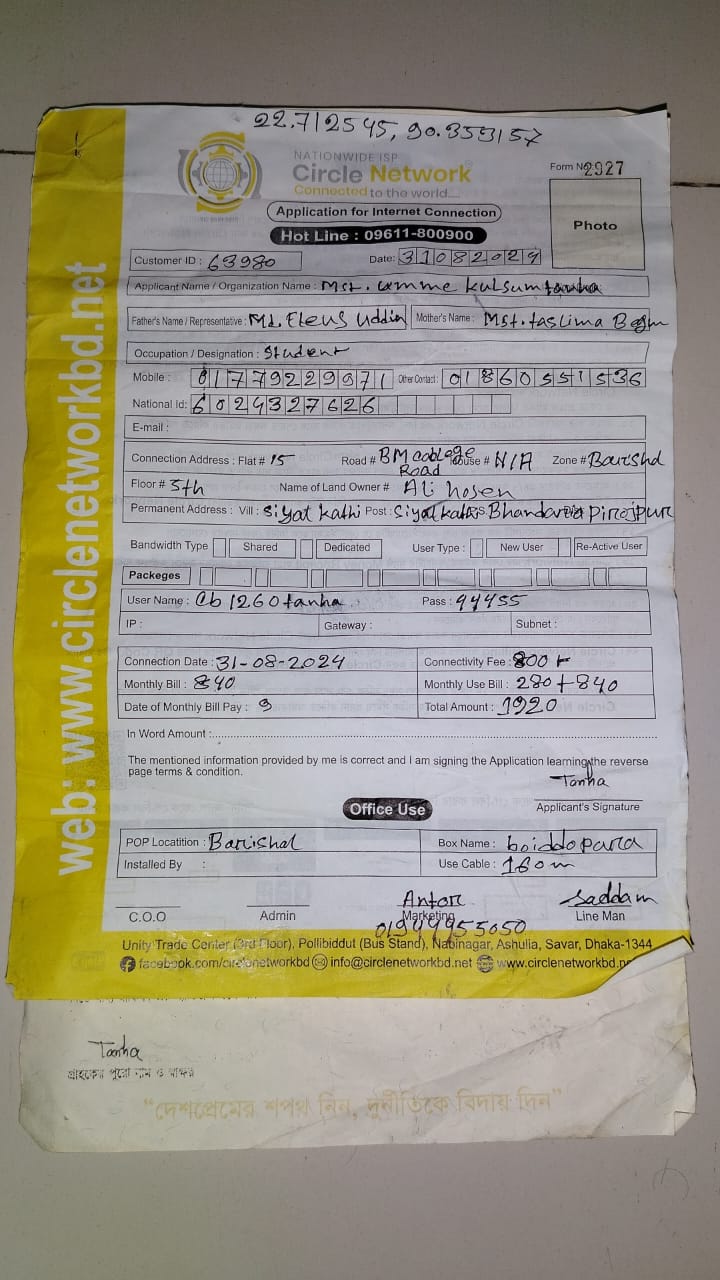 22.712545, 90.353157
NATIONWIDE ISP
Circle Network
Connected to the world....
Form No 2927
Application for Internet Connection
Photo
Hot Line : 09611-800900
Customer ID : 63980 Date: 31082024
Applicant Name / Organization Name : Mst. Umme Kulsum tanha
Father's Name / Representative : Md. Eleus Uddin Mother's Name : Mst. taslima Begm
Occupation / Designation : Student
Mobile : 01779229971 Other Contact : 01860551536
National Id: 6024327626
E-mail :
Connection Address : Flat # 15 Road # BM College Road House # N/A Zone # Barishal
Floor # 5th Name of Land Owner # Ali hosen
Permanent Address : Vill : Siyal kathi Post : Siyal kathi P.S. Bhandaria Pirojpur
Bandwidth Type Shared Dedicated User Type : New User Re-Active User
Packeges
User Name : Cb1260tanha Pass : 44455
IP : Gateway : Subnet :
Connection Date : 31-08-2024 Connectivity Fee : 800
Monthly Bill : 840 Monthly Use Bill : 280+840
Date of Monthly Bill Pay : 9 Total Amount : 1920
In Word Amount :
The mentioned information provided by me is correct and I am signing the Application learning the reverse
page terms & condition.
Tanha
Applicant's Signature
Office Use
POP Locatition : Barishal Box Name : boiddopara
Installed By : Use Cable : 160m
Antor Saddam
C.O.O Admin Marketing Line Man
01944955050
Unity Trade Center (3rd Floor), Pollibiddut (Bus Stand), Nabinagar, Ashulia, Savar, Dhaka-1344
facebook.com/circlenetworkbd info@circlenetworkbd.net www.circlenetworkbd.ne
web: www.circlenetworkbd.net
Tanha
গ্রাহকের পুরো নাম ও স্বাক্ষর
“দেশপ্রেমের শপথ নিন, দুর্নীতিকে বিদায় দিন”